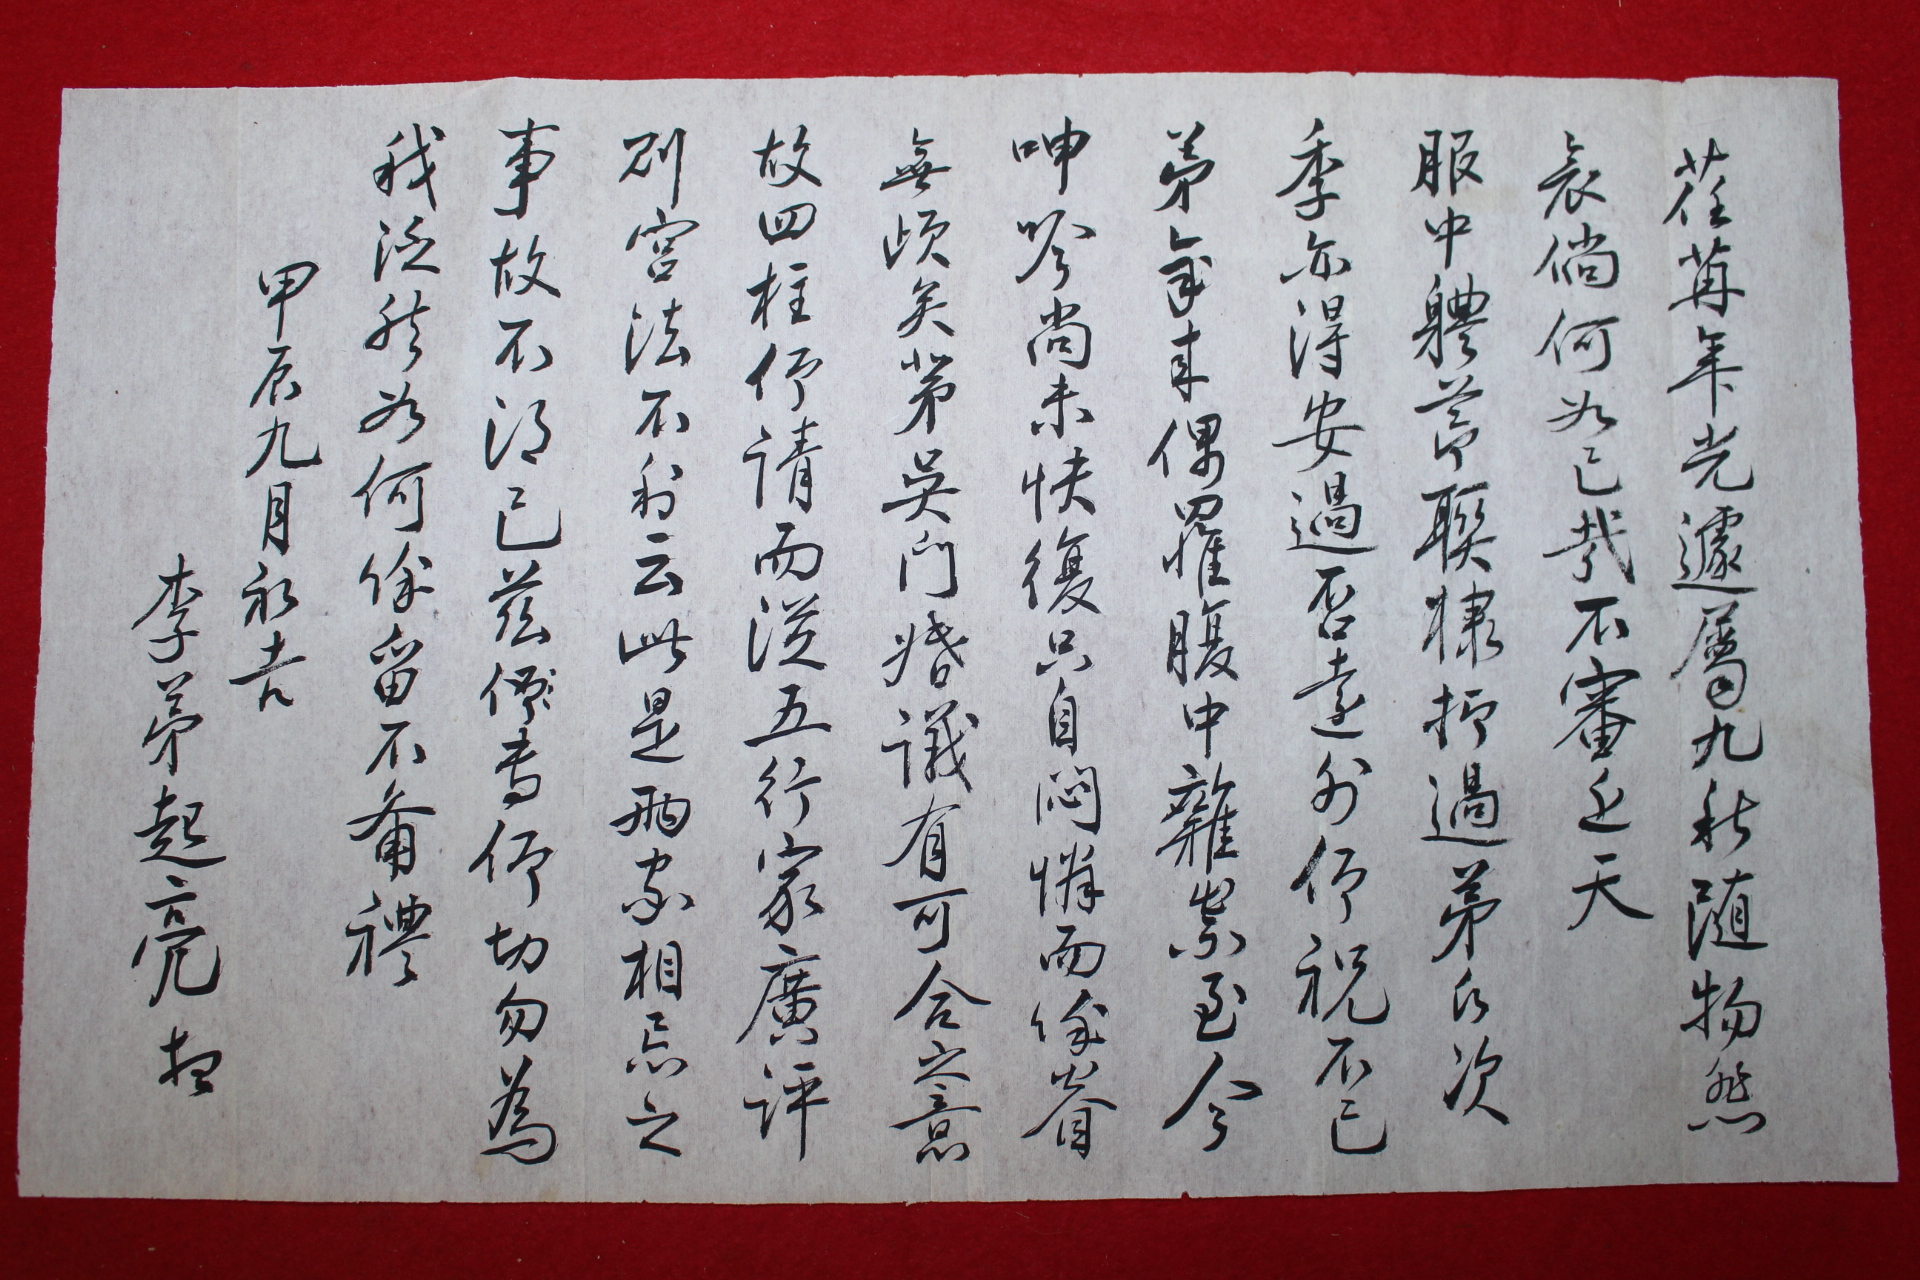 荏苒年光遽屬九秋随物愁
衰倘何如已哉不審近天
服中體節聯棣抑過弟氏次
季亦得安過否遠外仰祝不已
弟年來偶罹腹中雜祟至今
呻吟尚未快復只自悶憐而餘眷
無頉矣苐吳門婚議有可合之意
故四柱仰請而從五行家廣評
則宮法不利云此是兩家相忌之
事故不得已茲俻專仰切勿為
我泛然如何餘留不俻禮
甲辰九月初吉
李弟起亮拜